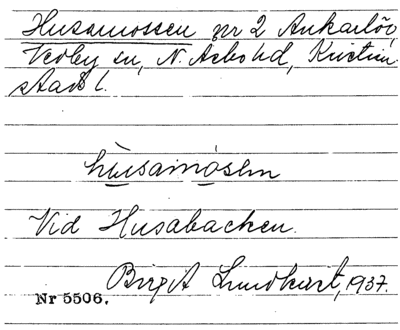 Husamossen nr 2 Ankarlöv,
Vedby sn, N. Åsbo hd, Kristian-
stads l.
husamosen
Vid Husabacken.
Birgit Lundkvist, 1937.
Nr 5506.